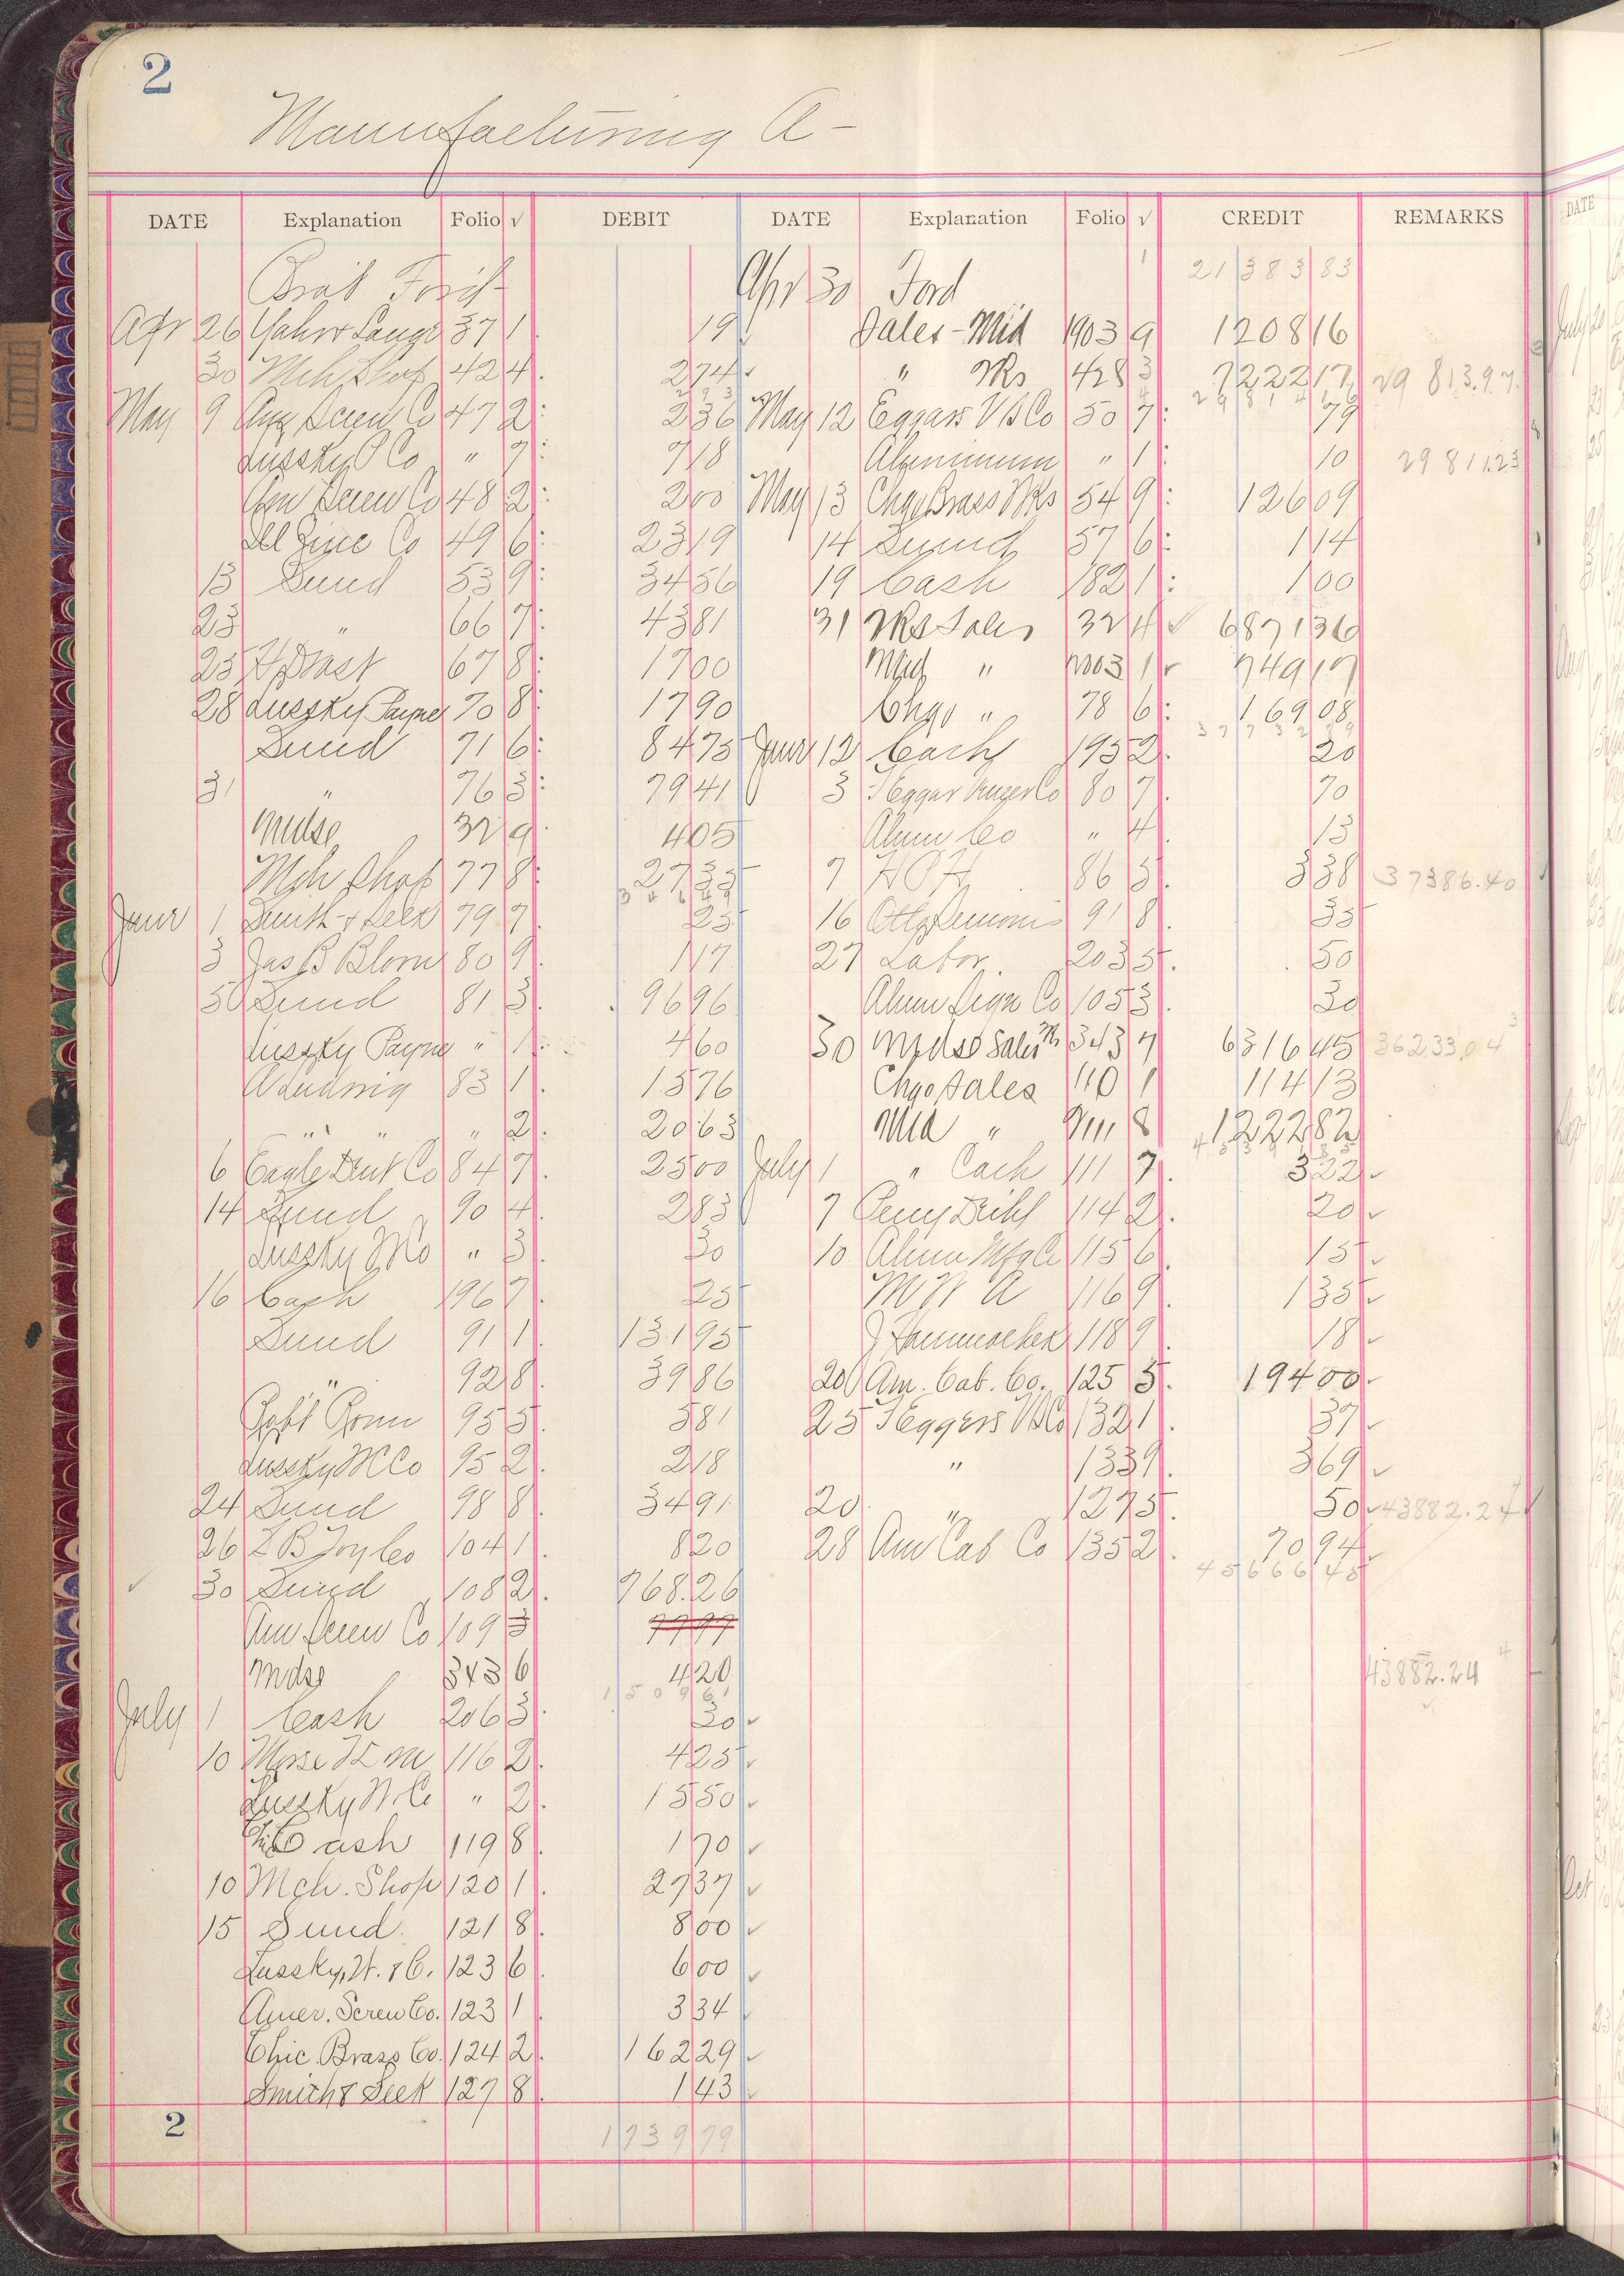 2
Manufacturing A-
DATE Explanation Folio √ DEBIT DATE Explanation Folio √ CREDIT REMARKS
Brot Ford Apr 30 Ford 21 383 83
Apr 26 371 19 Sales - Md 1903 9 1208 16
30 Mch Shop 424 274 " Wks 428 3 7222 17 29 813.97
May 9 Am Screw Co 47 2 236 May 12 Eggars V S Co 50 7 79
Lussky P Co " 7 718 Aluminum " 1 10 29811.23
Am Screw Co 48 2 200 May 13 Chgo Brass Wks 54 9 126 09
Ill Zinc Co 49 6 2319 14 Sund 57 6 1 14
13 Sund 53 9 3456 19 Cash 182 1 1 00
23 " 66 7 4381 31 Wks Sales 32 4 6871 36
25 67 8 1700 Md " 1003 1 749 17
28 Lussky Payne 70 8 1790 Chgo " 78 6 169 08
Sund 71 6 8475 June 12 Cash 195 2 20
31 " 76 3 7941 3 80 7 70
Mdse 32 9 405 Alum Co " 4 15
Mch Shop 77 8 2735 7 H O H 86 3 338 37386.40
June 1 Smith & Seek 79 7 25 16 91 8 35
3 Jas B Blom 80 9 117 27 Labor 203 5 50
5 Sund 81 3 9696 Alum Sign Co 105 3 30
Lussky Payne " 1 460 30 Mdse Sales 343 7 6316 45 36233.04
A Ludwig 83 1 1576 Chgo Sales 110 1 114 13
" " " 2 2063 Md " 111 8 1222 82
6 Eagle Dent Co 84 7 2500 July 1 " Cash 111 7 322
14 Sund 90 4 283 7 114 2 20
Lussky " 3 30 10 Alum Mfg Co 115 6 15
16 Cash 196 7 25 M W A 116 9 135
Sund 91 1 13195 J Hammacher 118 9 18
" 92 8 3986 20 Am. Cab. Co. 125 5 194 00
95 5 581 25 Eggers V S Co 132 1 37
Lussky W Co 95 2 218 " 133 9 369
24 Sund 98 8 3491 20 " 127 5 50 43882.24
26 L B Joy Co 104 1 820 28 Am Cab Co 135 2 70 94
30 Sund 108 2 768.26 45666 45
Am Screw Co 109 3 7797
Mdse 343 6 420 43882.24
150961
July 1 Cash 206 3 30
10 Morse 116 2 425
Lussky W. Co " 2 1550
Cash 119 8 170
10 Mch. Shop 120 1 2737
15 Sund. 121 8 800
Lussky, W. & C. 123 6 600
Amer. Screw Co. 123 1 334
Chic. Brass Co. 124 2 16229
Smith & Seek 127 8 143
2 1739 79